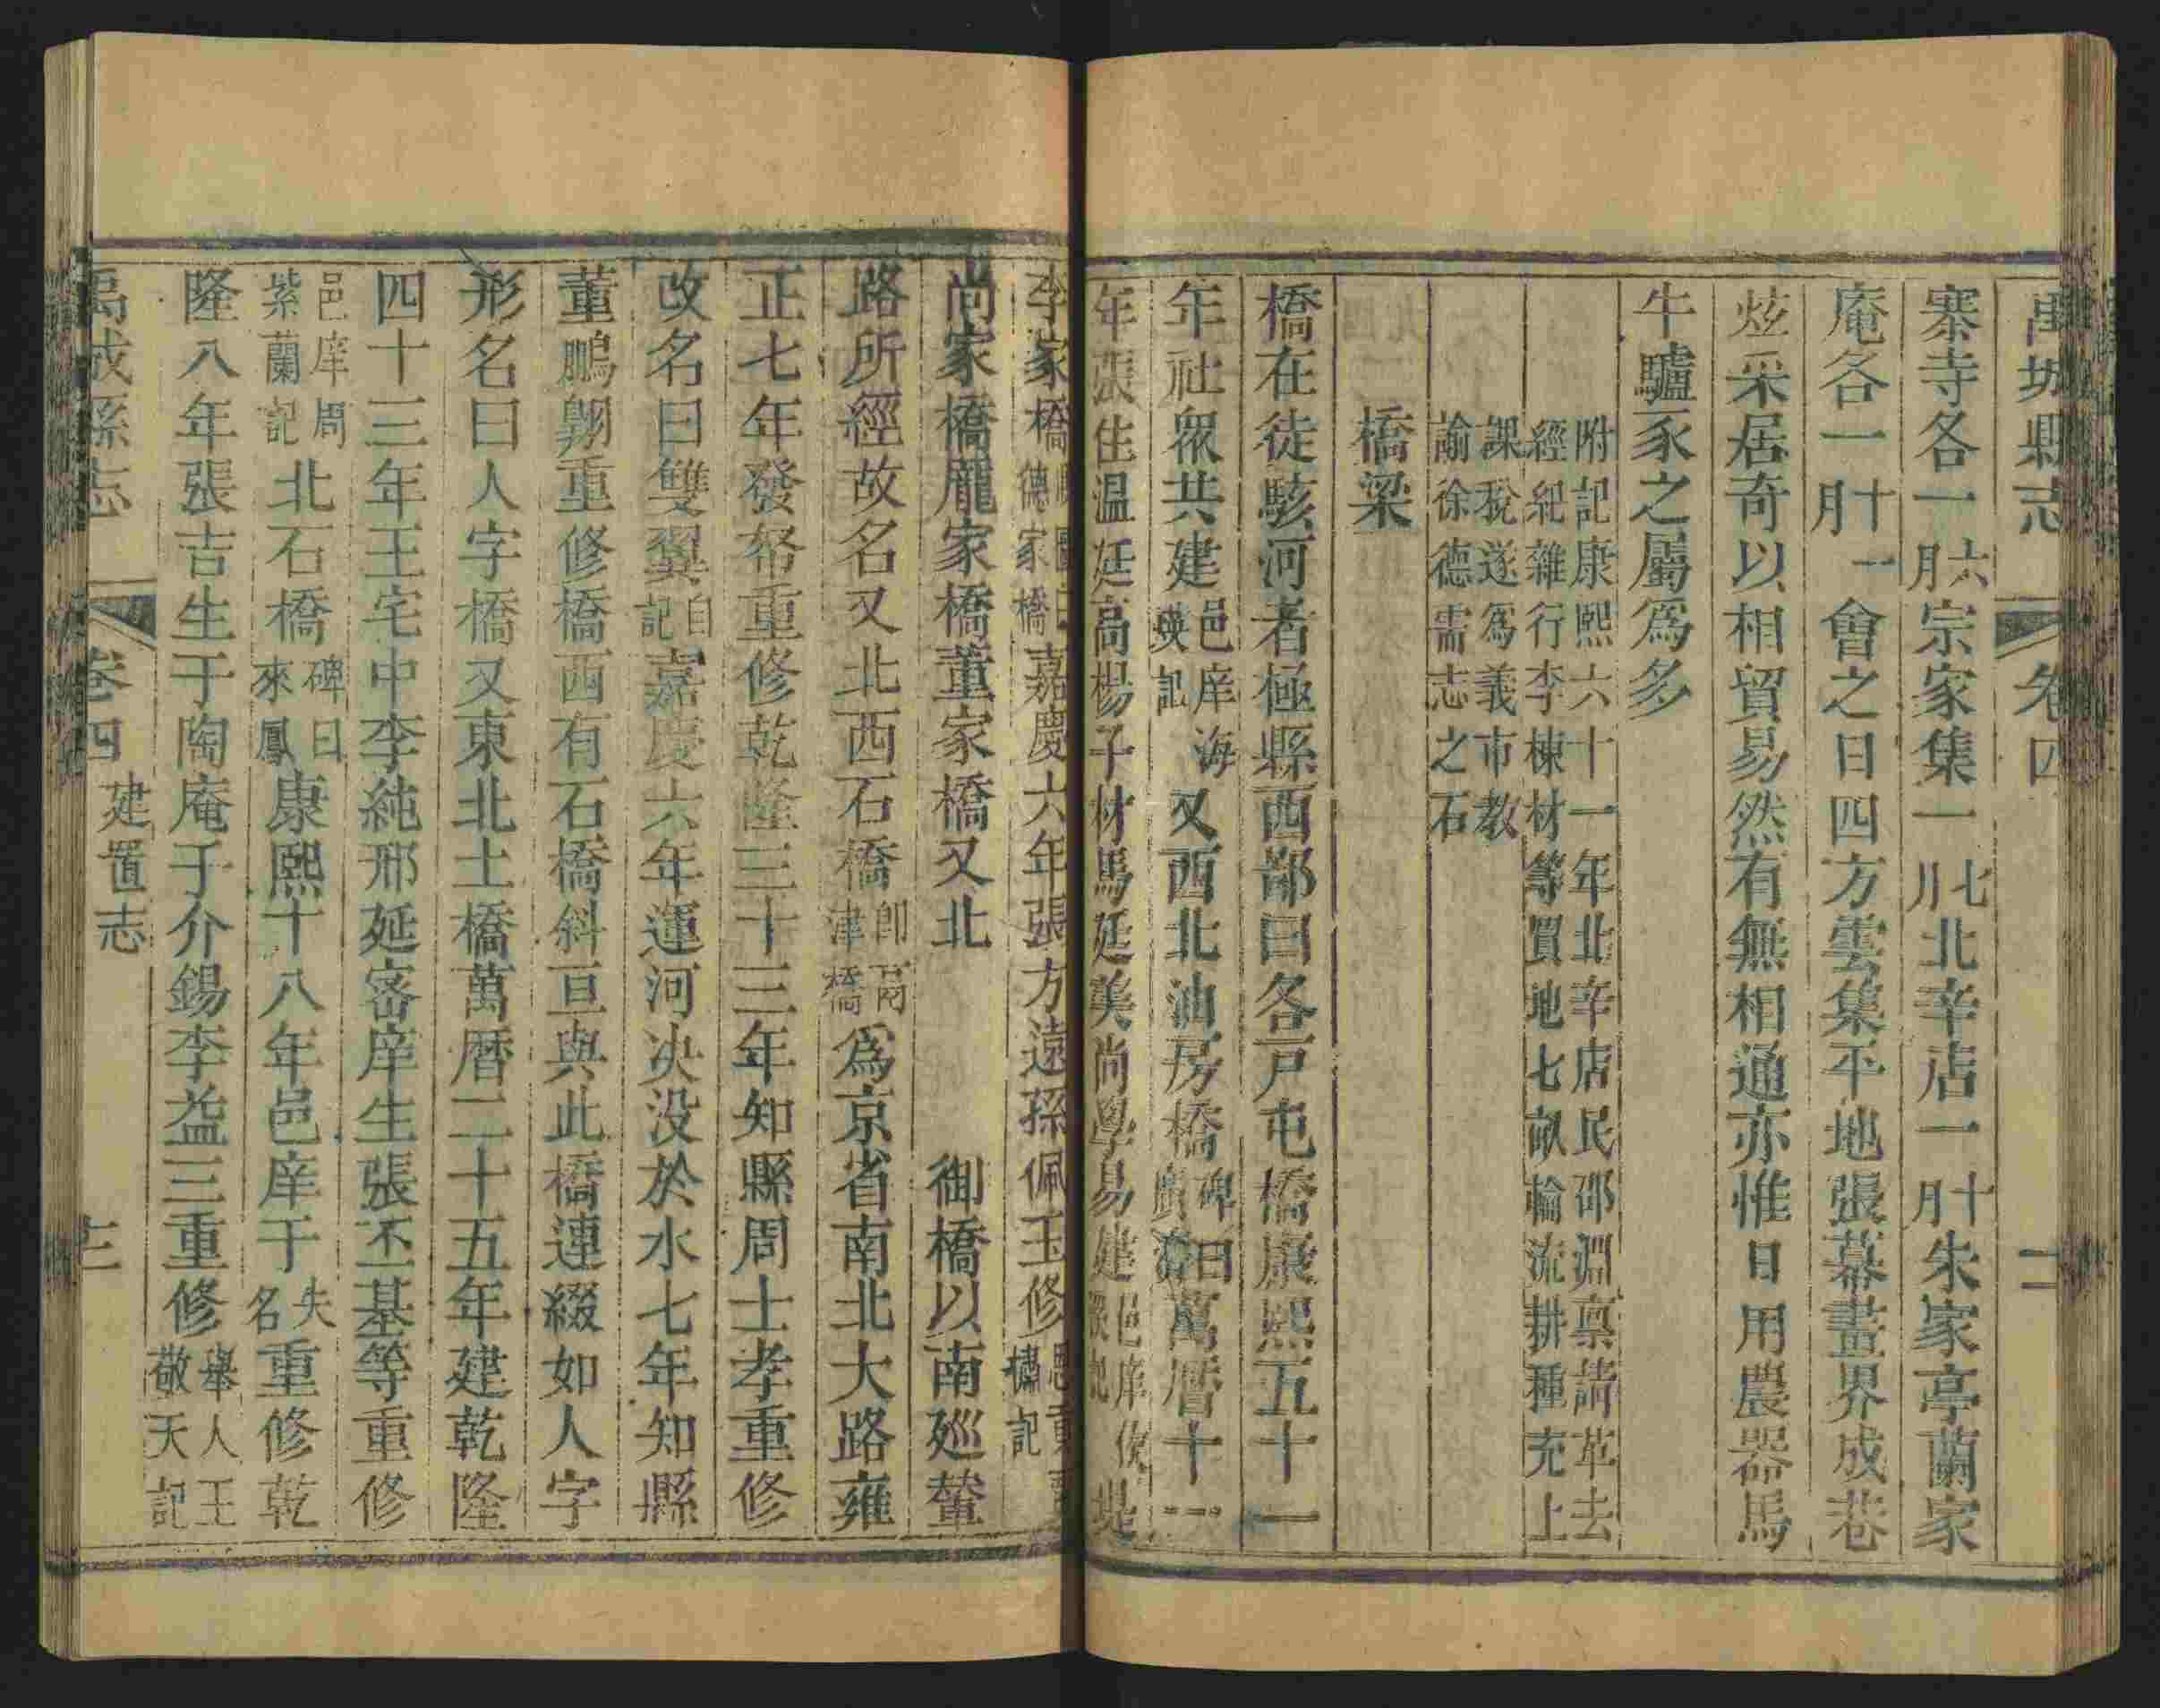 禹城縣志 卷四
寨寺各一六月宗家集一七月北辛店一十月朱家亭蘭家
庵各一十一月會之日四方雲集平地張幕畫界成巷
炫采居奇以相貿易然有無相通亦惟日用農器馬
牛驢豕之屬爲多
附記康熙六十一年北辛店民邵淵稟請革去
經紀雜行李棟材等買地七畝輪流耕種充上
課稅遂爲義市教
諭徐德需志之石
橋梁
橋在徒駭河者極縣西鄙曰各戸屯橋康熙五十一
年社衆共建邑庠海瑛記又西北油房橋碑曰廣濟萬曆十二
年張住温廷高楊子材馬廷美尚學易建邑庠侯記堤
李家橋 德家橋嘉慶六年張方遠孫佩玉修 記
尚家橋龐家橋董家橋又北
御橋以南廵蹕
路所經故名又北西石橋卽鬲津橋爲京省南北大路雍
正七年發帑重修乾隆三十三年知縣周士孝重修
改名曰雙翼自記嘉慶六年運河决没於水七年知縣
董鵬翺重修橋西有石橋斜亘與此橋連綴如人字
形名曰人字橋又東北土橋萬曆二十五年建乾隆
四十三年王宅中李純邢延密庠生張丕基等重修
邑庠周紫蘭記北石橋碑曰來鳳康熙十八年邑庠于失名重修乾
隆八年張吉生于陶庵于介錫李益三重修舉人王敬天記
禹城縣志 卷四 建置志 十二